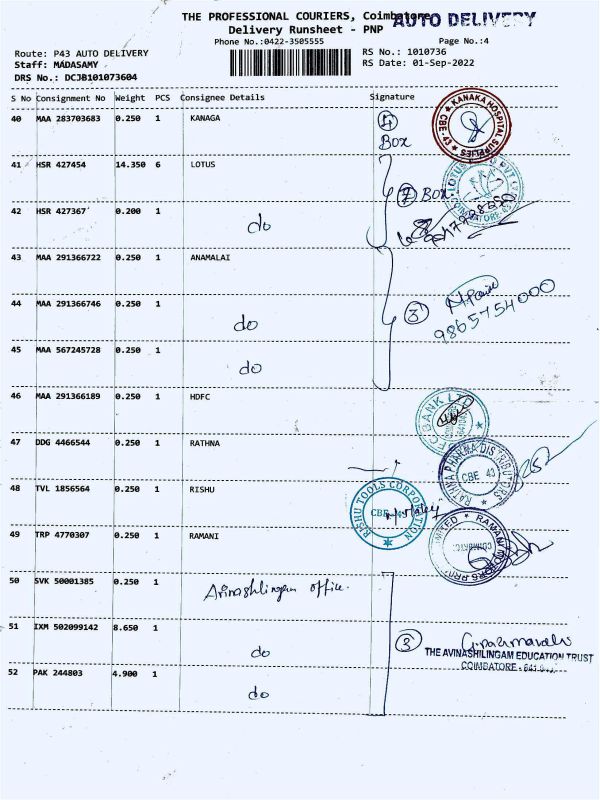 THE PROFESSIONAL COURIERS, Coimbatore
AUTO DELIVERY
Delivery Runsheet - PNP
Phone No.:0422-3505555
Page No.:4
Route: P43 AUTO DELIVERY
RS No.: 1010736
Staff: MADASAMY
RS Date: 01-Sep-2022
DRS No.: DCJB101073604
S No Consignment No Weight PCS Consignee Details Signature
40 MAA 283703683 0.250 1 KANAGA
Box
KANAKA HOSPITAL SUPPLIES CBE-43
41 HSR 427454 14.350 6 LOTUS
7 Box
LOTUS PVT LTD COIMBATORE
42 HSR 427367 0.200 1 do
43 MAA 291366722 0.250 1 ANAMALAI
44 MAA 291366746 0.250 1 do
3
9865754000
45 MAA 567245728 0.250 1 do
46 MAA 291366189 0.250 1 HDFC
BANK LTD
47 DDG 4466544 0.250 1 RATHNA
RATHNA PHARMA DISTRIBUTORS CBE 43
48 TVL 1856564 0.250 1 RISHU
RISHU TOOLS CORPORATION CBE-43
49 TRP 4770307 0.250 1 RAMANI
RAMANI MOTORS PRIVATE LIMITED
50 SVK 50001385 0.250 1 Avinashlingam office.
51 IXM 502099142 8.650 1 do
3
THE AVINASHILINGAM EDUCATION TRUST
COIMBATORE - 641
52 PAK 244803 4.900 1 do